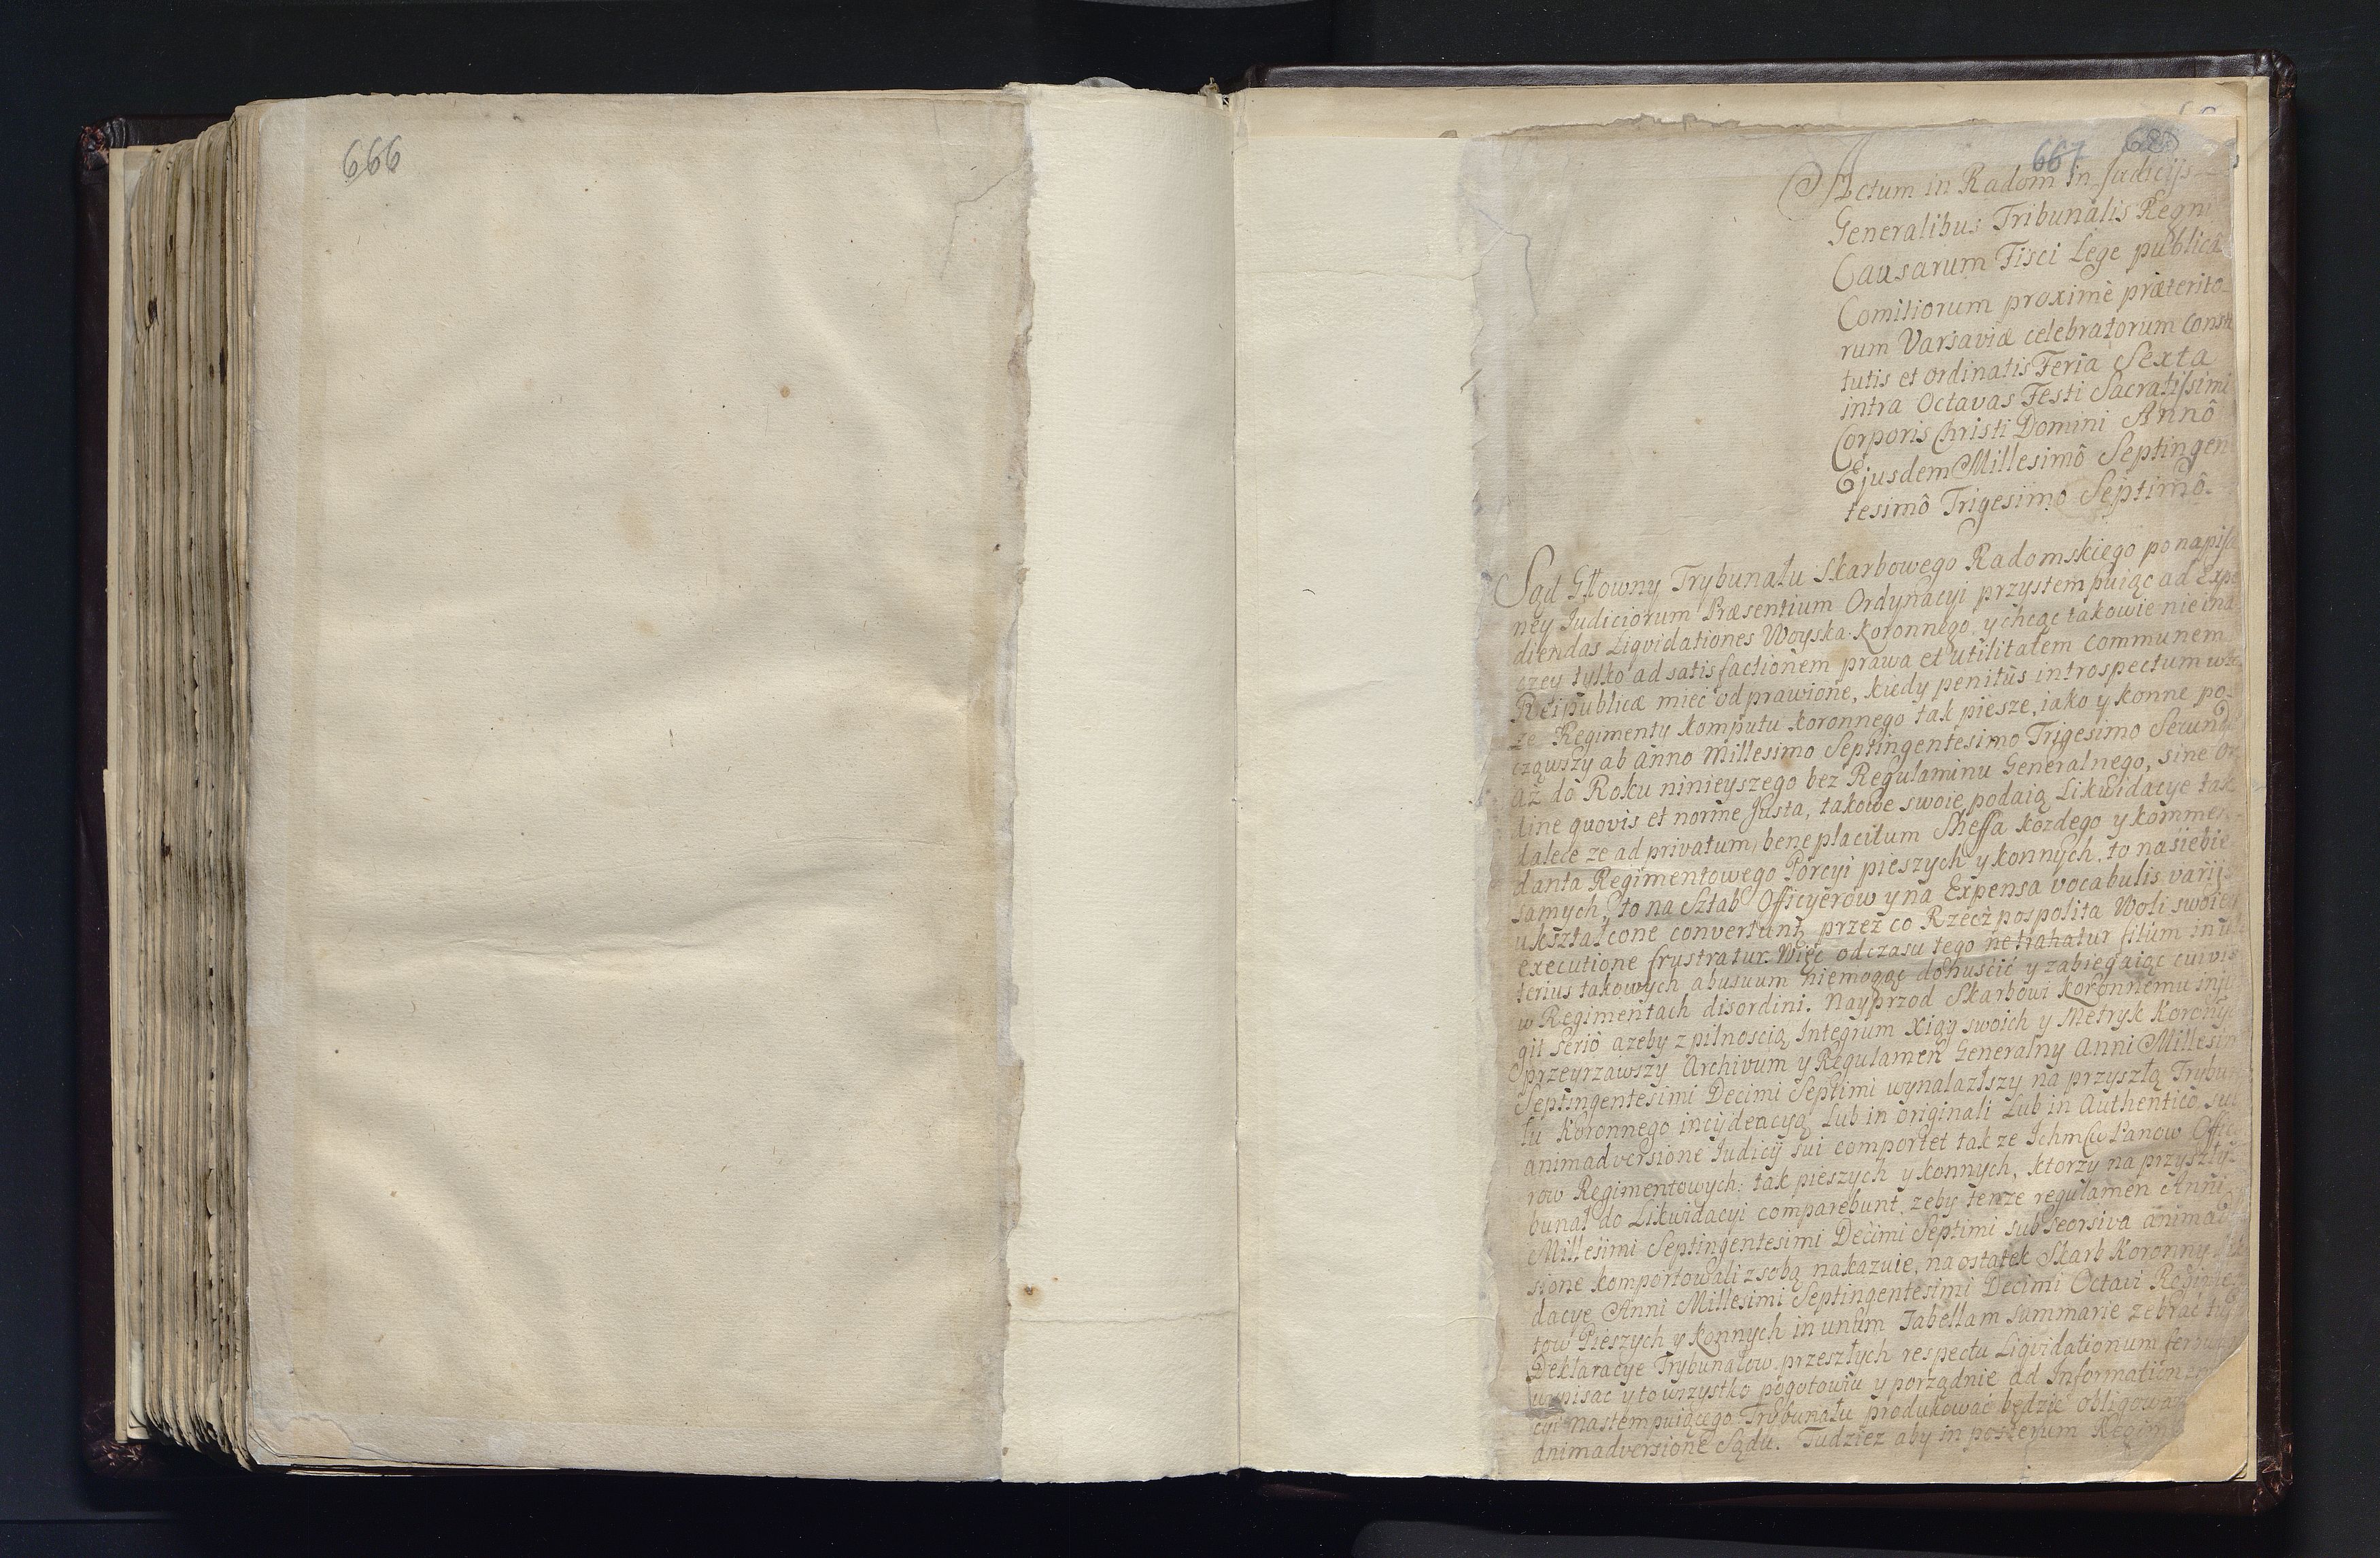 666
667
Actum in Radom in Judicijs
Generalibus Tribunalis Regni
Causarum Fisci Lege publicâ
Comitiorum proximè præterito-
rum Varsaviæ celebratorum Consti
tutis et ordinatis Feria Sexta
intra Octavas Festi Sacratissimi
Corporis Christi Domini Annô
Ejusdem Millesimô Septingen
tesimô Trigesimo Septimô.
Sąd Głowny Trybunału Skarbowego Radomskiego po napisa
ney Judiciorum Præsentium Ordynacyi przystempuiąc ad Expe
diendas Liqvidationes Woyska Koronnego, y chcąc takowie nie ina
czey tylko ad satisfactionem prawa et utilitatem Communem
Reipublicæ mieć odprawione, kiedy penitùs introspectum
ze Regimenty Komputu Koronnego tak piesze, iako y konne po-
cząwszy ab Anno Millesimo Septingentesimo Trigesimo Secundo
aż do Roku ninieyszego bez Regulaminu Generalnego, sine Or
dine quovis et norme Justa, takowe swoie podaią Likwidacye tak
dalece ze ad privatum beneplacitum Sheffa kozdego y kommen
danta Regimentowego Porcyi pieszych y konnych, to na siebie
samych, to na Sztab Officyerow y na Expensa vocabulis varijs
ukształcone convertunt, przez co Rzecz pospolita Woli swoiey
executione frustratur. Więc od czasu tego ne trahatur filum in ul
terius takowych abusuum niemogąc dopuścić y zabiegaiąc cuivis
w Regimentach disordini. Nayprzod Skarbowi Koronnemu inju
git seriô azeby z pilnoscią Integrum Xiąg swoich y Metryk Koronych
przeyrzawszy Archivum y Regulamen Generalny Anni Millesim
Septingentesimi Decimi Septimi wynalazłszy na przyszłą Trybuna
łu Koronnego incydencyą Lub in originali Lub in Authentico sub
animadversione Judicij sui comportet tak ze Ichmciu Panow Officy
row Regimentowych: tak pieszych y konnych, ktorzy na przyszły
bunał do Likwidacyi comparebunt, zeby tenze regulamen Anni
Millesimi Septingentesimi Decimi Septimi sub seorsiva animadver
sione komportowali z sobą nakazuie, na ostatek Skarb Koronny
dacye Anni Millesimi Septingentesimi Decimi Octavi Regimen
tow Pieszych y Konnych in unum Tabellam summarie zebrać
Deklaracye Trybunałow przeszłych respectu Liqvidationum
wypisac y to wszystko pogotowiu y porządnie ad Informationem
nastempuiącego Trybunału produkować będzie obligowany
animadversione Sądu. Tudziez aby in posterum Regim